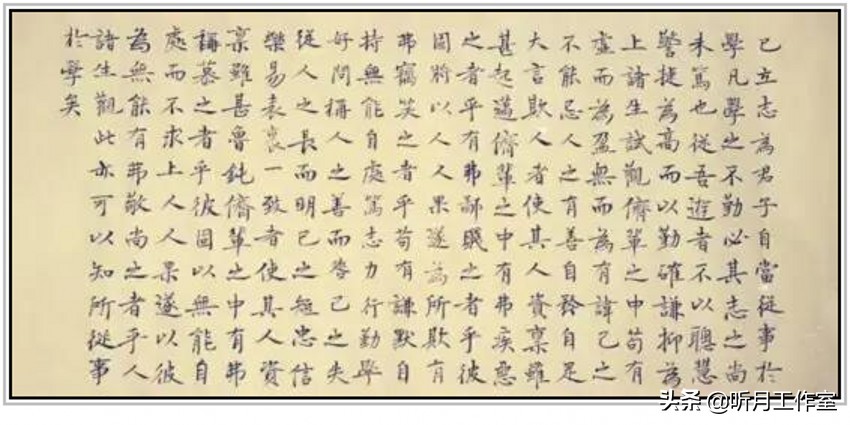 已立志為君子自當從事於
學凡學之不勤必其志之尚
未篤也從吾遊者不以聰慧
警捷為高而以勤確謙抑為
上諸生試觀儕輩之中苟有
虛而為盈無而為有諱己之
不能忌人之有善自矜自足
大言欺人者使其人資稟雖
甚超邁儕輩之中有弗疾惡
之者乎有弗鄙賤之者乎彼
固將以人人果遂為所欺有
弗竊笑之者乎苟有謙默自
持無能自處篤志力行勤學
好問稱人之善而咎己之失
從人之長而明己之短忠信
樂易表裏一致者使其人資
稟雖甚魯鈍儕輩之中有弗
稱慕之者乎彼固以無能自
處而不求上人人果遂以彼
為無能有弗敬尚之者乎人
諸生觀此亦可以知所從事
於學矣
头条 @听月工作室